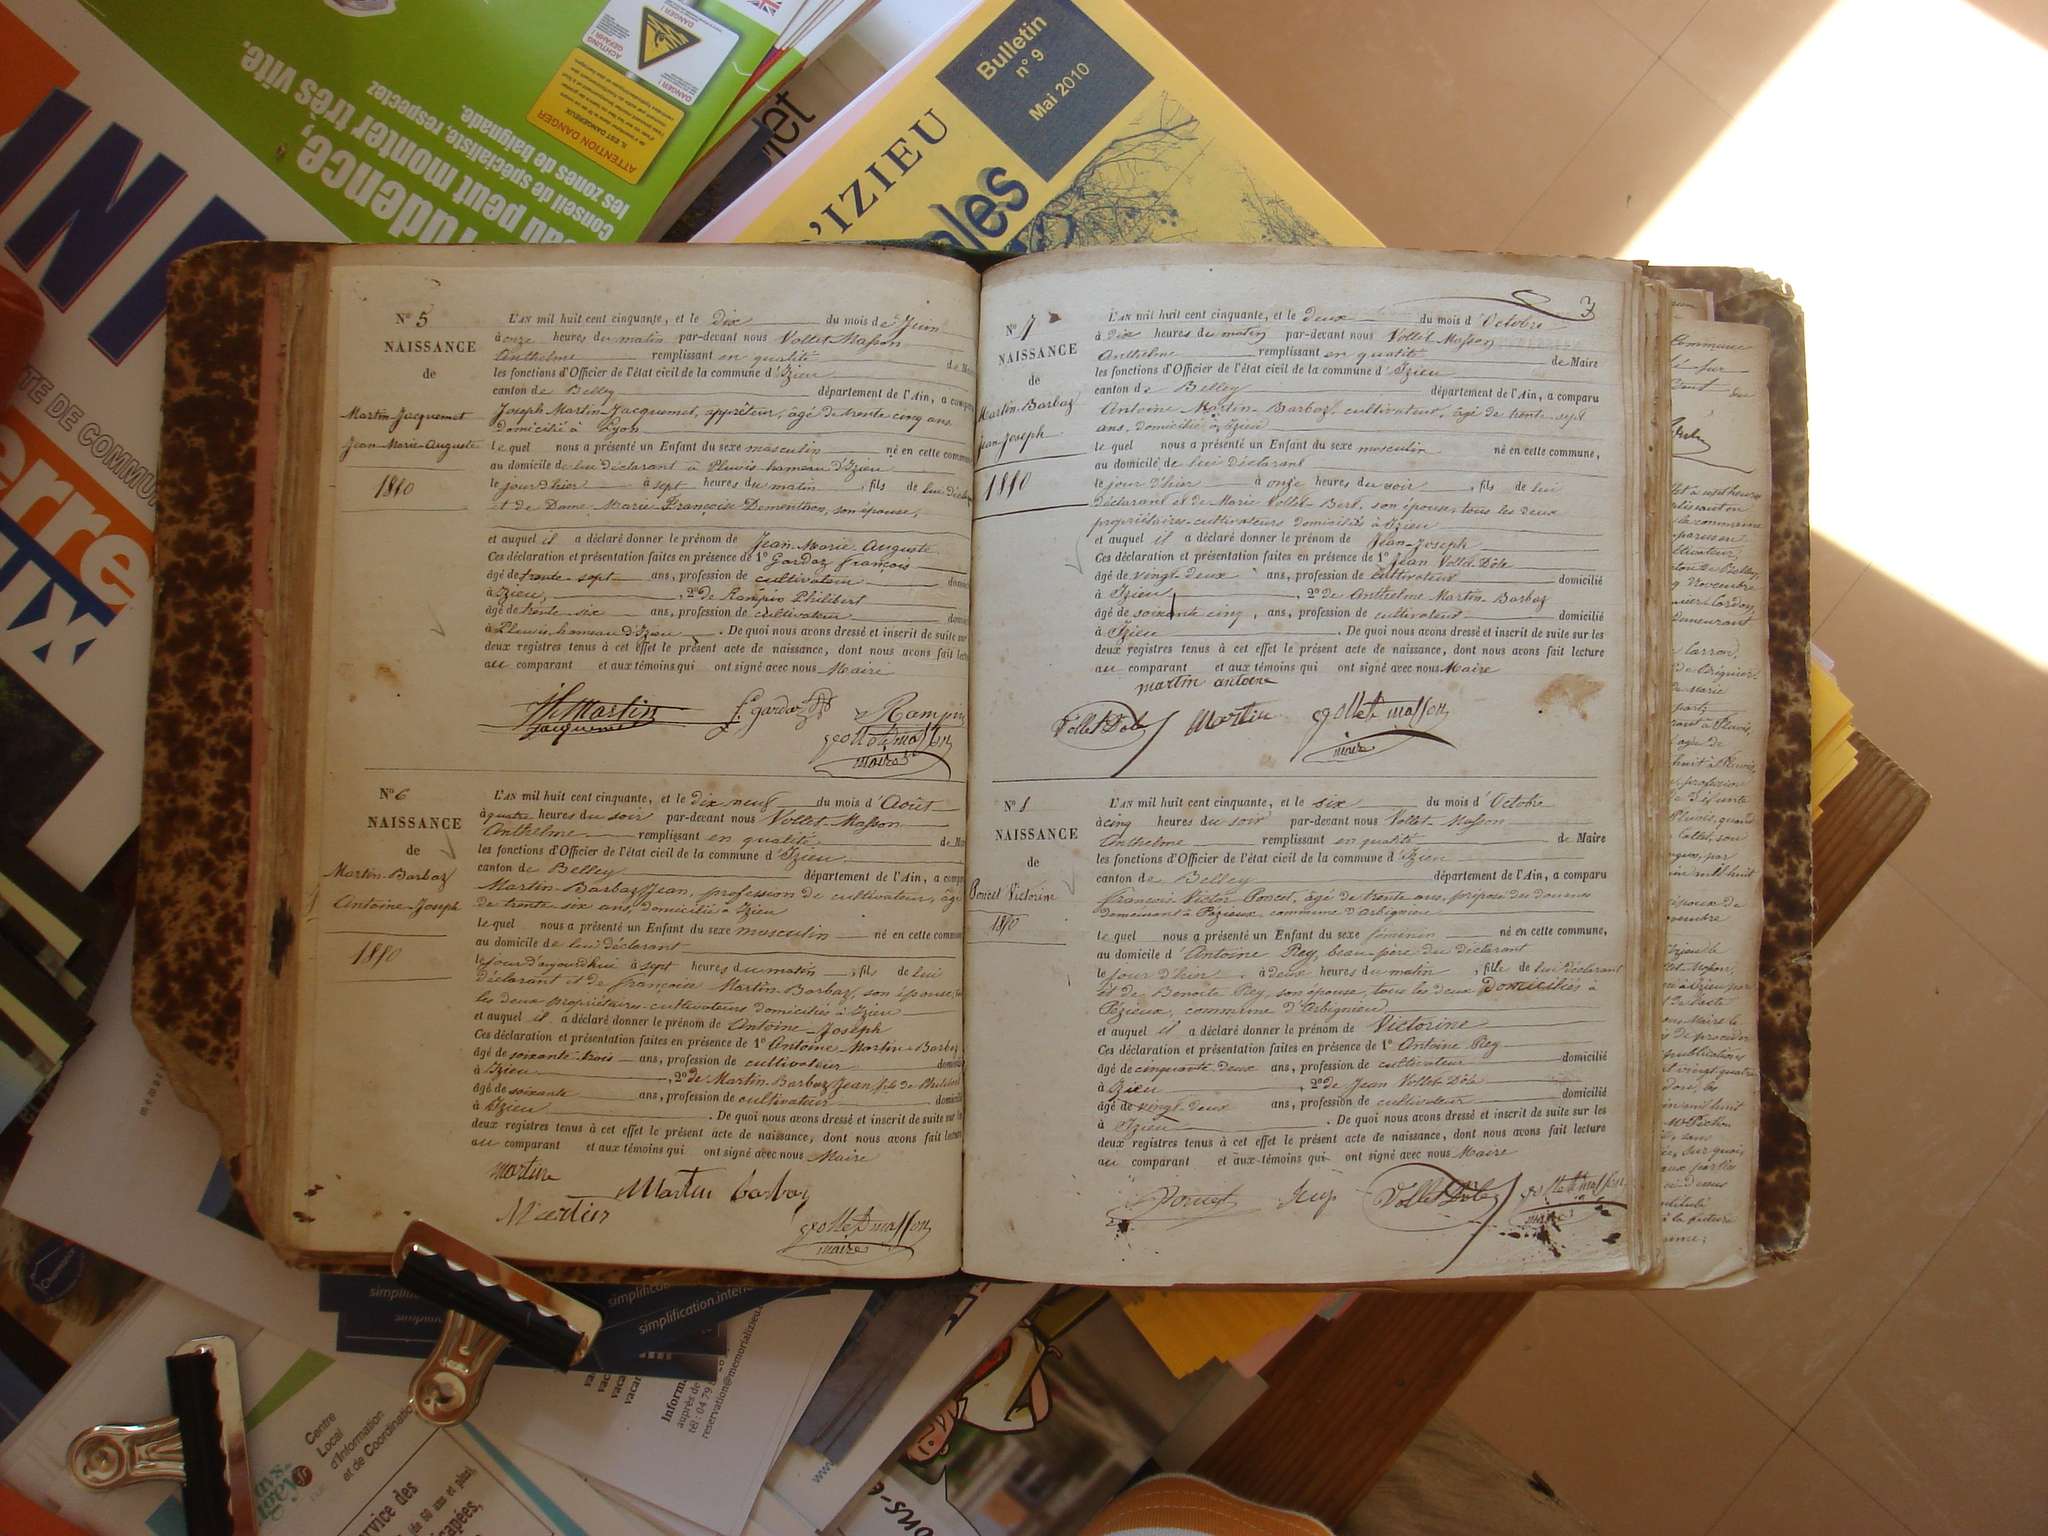 Bulletin
n° 9
Mai 2010
D'IZIEU
ATTENTION DANGER
IL EST DANGEREUX
ACHTUNG
GEFAHR !
DANGER !
au peut monter très vite.
conseil de spécialiste, respectez
les zones de baignade.
N° 5
NAISSANCE
de
Martin-Jacquemet
Jean-Marie-Auguste
1850
L'AN mil huit cent cinquante, et le dix du mois de Juin
à onze heures du matin par-devant nous Vollet-Masson
Anthelme remplissant en qualité de Maire
les fonctions d'Officier de l'état civil de la commune d'Izieu
canton de Belley département de l'Ain, a comparu
Joseph Martin-Jacquemet, apprêteur, âgé de trente cinq ans
domicilié à Lyon
le quel nous a présenté un Enfant du sexe masculin né en cette commune
au domicile de lui déclarant à Pluvis hameau d'Izieu
le jour d'hier à sept heures du matin, fils de lui
et de Dame Marie-Françoise son épouse,
et auquel il a déclaré donner le prénom de Jean-Marie-Auguste
Ces déclaration et présentation faites en présence de 1° Gardaz françois
âgé de trente-sept ans, profession de cultivateur
à Izieu, 2° de Rampin Philibert
âgé de trente-six ans, profession de cultivateur
à Pluvis hameau d'Izieu. De quoi nous avons dressé et inscrit de suite sur
deux registres tenus à cet effet le présent acte de naissance, dont nous avons fait lecture
au comparant et aux témoins qui ont signé avec nous Maire
Martin
Jacquemet
f. gardaz
Rampin
vollet masson
maire
N° 6
NAISSANCE
de
Martin-Barbaz
Antoine-Joseph
1850
L'AN mil huit cent cinquante, et le dix neuf du mois d'Août
à quatre heures du soir par-devant nous Vollet-Masson
Anthelme remplissant en qualité de Maire
les fonctions d'Officier de l'état civil de la commune d'Izieu
canton de Belley département de l'Ain, a comparu
Martin-Barbaz Jean, profession de cultivateur, âgé
de trente-six ans, domicilié à Izieu
le quel nous a présenté un Enfant du sexe masculin né en cette commune
au domicile de lui déclarant
le jour d'aujourd'hui à sept heures du matin, fils de lui
déclarant et de françoise Martin-Barbaz, son épouse,
les deux propriétaires-cultivateurs domiciliés à Izieu
et auquel il a déclaré donner le prénom de Antoine-Joseph
Ces déclaration et présentation faites en présence de 1° Antoine Martin-Barbaz
âgé de soixante-trois ans, profession de cultivateur
à Izieu, 2° de Martin-Barbaz Jean, fils de Philibert
âgé de soixante ans, profession de cultivateur domicilié
à Izieu. De quoi nous avons dressé et inscrit de suite sur les
deux registres tenus à cet effet le présent acte de naissance, dont nous avons fait lecture
au comparant et aux témoins qui ont signé avec nous Maire
martin
Martin barbaz
Martin
vollet masson
maire
3
N° 7
NAISSANCE
de
Martin-Barbaz
Jean-Joseph
1850
L'AN mil huit cent cinquante, et le deux du mois d'Octobre
à dix heures du matin par-devant nous Vollet Masson
Anthelme remplissant en qualité de Maire
les fonctions d'Officier de l'état civil de la commune d'Izieu
canton de Belley département de l'Ain, a comparu
Antoine Martin-Barbaz, cultivateur, âgé de trente-sept
ans, domicilié à Izieu
le quel nous a présenté un Enfant du sexe masculin né en cette commune,
au domicile de lui déclarant
le jour d'hier à onze heures du soir, fils de lui
déclarant et de Marie Vollet-Bert, son épouse, tous les deux
propriétaires-cultivateurs domiciliés à Izieu
et auquel il a déclaré donner le prénom de Jean-Joseph
Ces déclaration et présentation faites en présence de 1° Jean Vollet-Dôle
âgé de vingt-deux ans, profession de cultivateur domicilié
à Izieu, 2° de Anthelme Martin-Barbaz
âgé de soixante cinq, ans, profession de cultivateur domicilié
à Izieu. De quoi nous avons dressé et inscrit de suite sur les
deux registres tenus à cet effet le présent acte de naissance, dont nous avons fait lecture
au comparant et aux témoins qui ont signé avec nous Maire
martin antoine
Vollet Dole
Martin
vollet masson
maire
N° 8
NAISSANCE
de
Poncet Victorine
1850
L'AN mil huit cent cinquante, et le six du mois d'Octobre
à cinq heures du soir par-devant nous Vollet-Masson
Anthelme remplissant en qualité de Maire
les fonctions d'Officier de l'état civil de la commune d'Izieu
canton de Belley département de l'Ain, a comparu
françois Victor Poncet, âgé de trente ans, préposé des douanes
demeurant à Pézieux, commune d'Arbignieu
le quel nous a présenté un Enfant du sexe féminin né en cette commune,
au domicile d'Antoine Rey, beau-père du déclarant
le jour d'hier à deux heures du matin, fille de lui déclarant
et de Benoîte Rey, son épouse, tous les deux domiciliés à
Pézieux, commune d'Arbignieu
et auquel il a déclaré donner le prénom de Victorine
Ces déclaration et présentation faites en présence de 1° Antoine Rey
âgé de cinquante-deux ans, profession de cultivateur domicilié
à Izieu, 2° de Jean Vollet-Dôle
âgé de vingt-deux ans, profession de cultivateur domicilié
à Izieu. De quoi nous avons dressé et inscrit de suite sur les
deux registres tenus à cet effet le présent acte de naissance, dont nous avons fait lecture
au comparant et aux témoins qui ont signé avec nous Maire
Poncet
Rey
Vollet Dôle
vollet masson
maire
simplification
simplification.inter
Centre
Local
d'Information
et de Coordination
Inform
auprès de
tél : 04 79
reservation@memorializieu